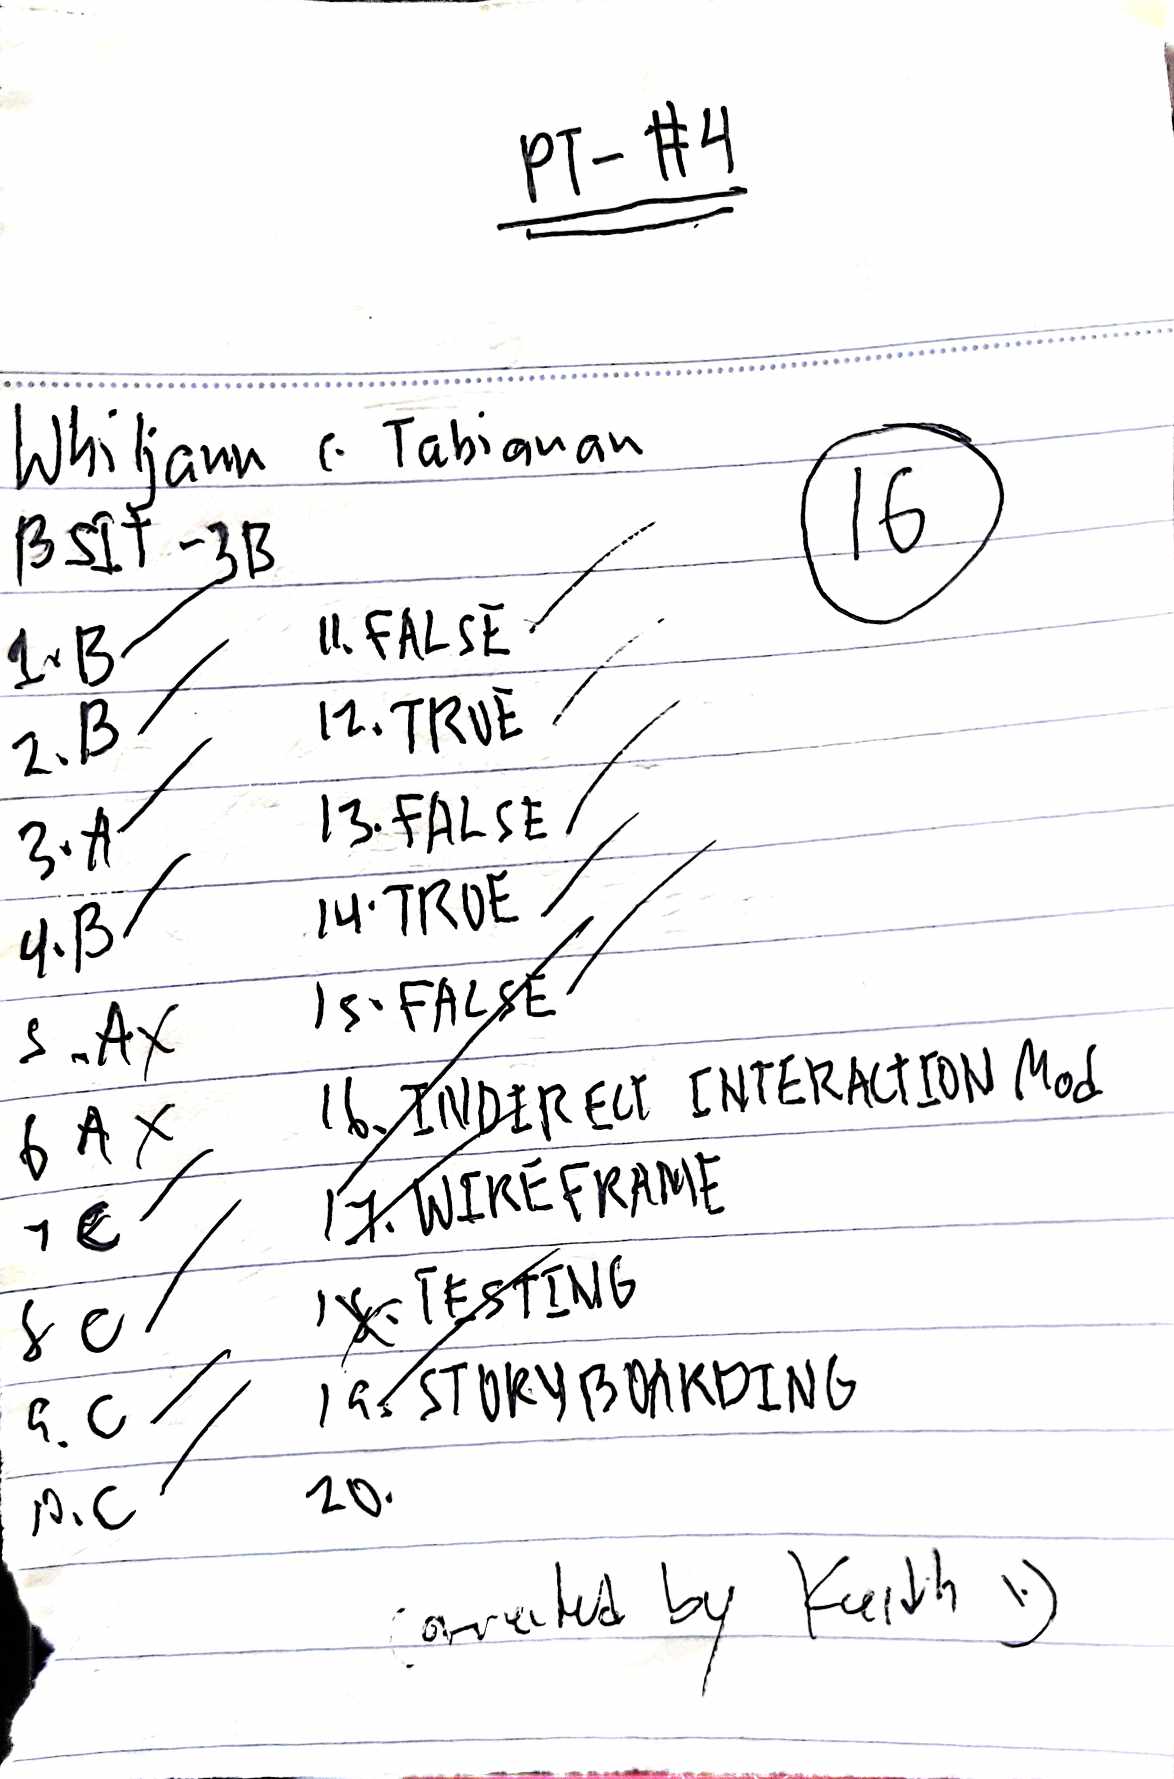 PT- #4
Whiljann C. Tabianan
BSIT -3B
16
1. B
2. B
3. A
4. B
5. A X
6 A X
7 C
8 C
9. C
10. C
11. FALSE
12. TRUE
13. FALSE
14. TRUE
15. FALSE
16. INDIRECT INTERACTION Mod
17. WIREFRAME
18. TESTING
19. STORYBOARDING
20.
corrected by Keith :)